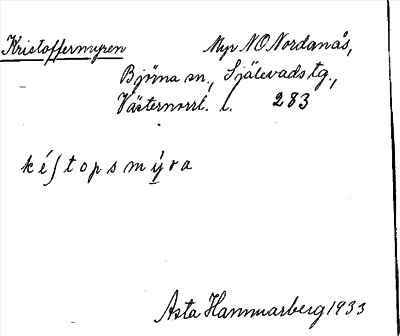 Kristoffermyren Myr NO Nordanås,
Björna sn., Själevads tg.,
Västernorrl. l. 283
késtopsmýra
Asta Hammarberg 1933